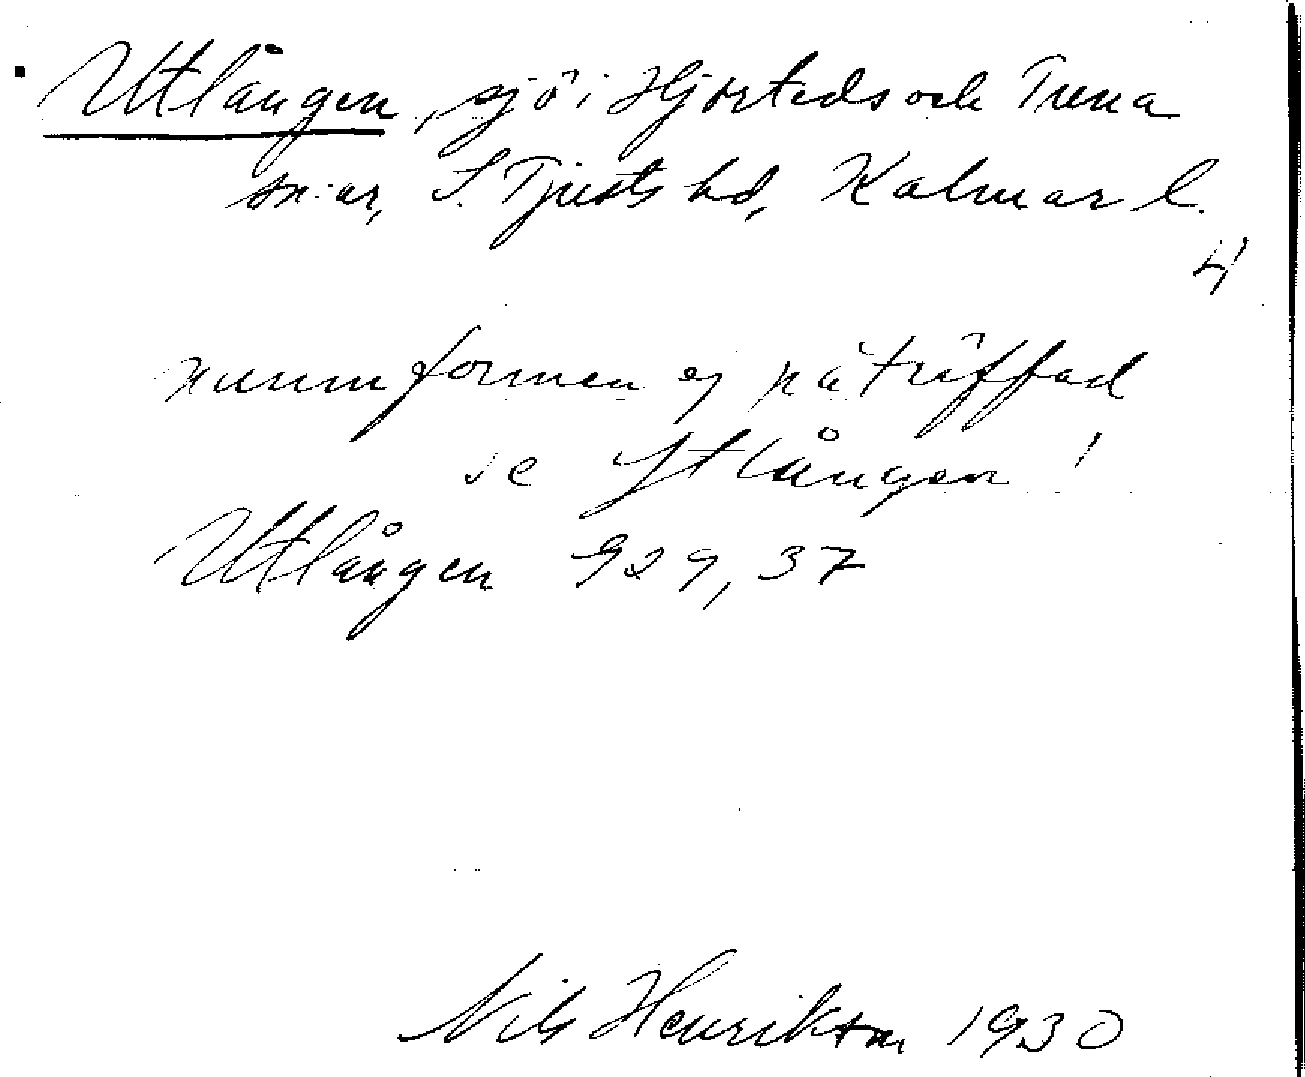 Utlången, sjö i Hjorteds och Tuna
sn:ar, S. Tjusts hd, Kalmar l.
4
namnformen ej påträffad
se Ytlången!
Utlången 929, 37
Nils Henrikson 1930